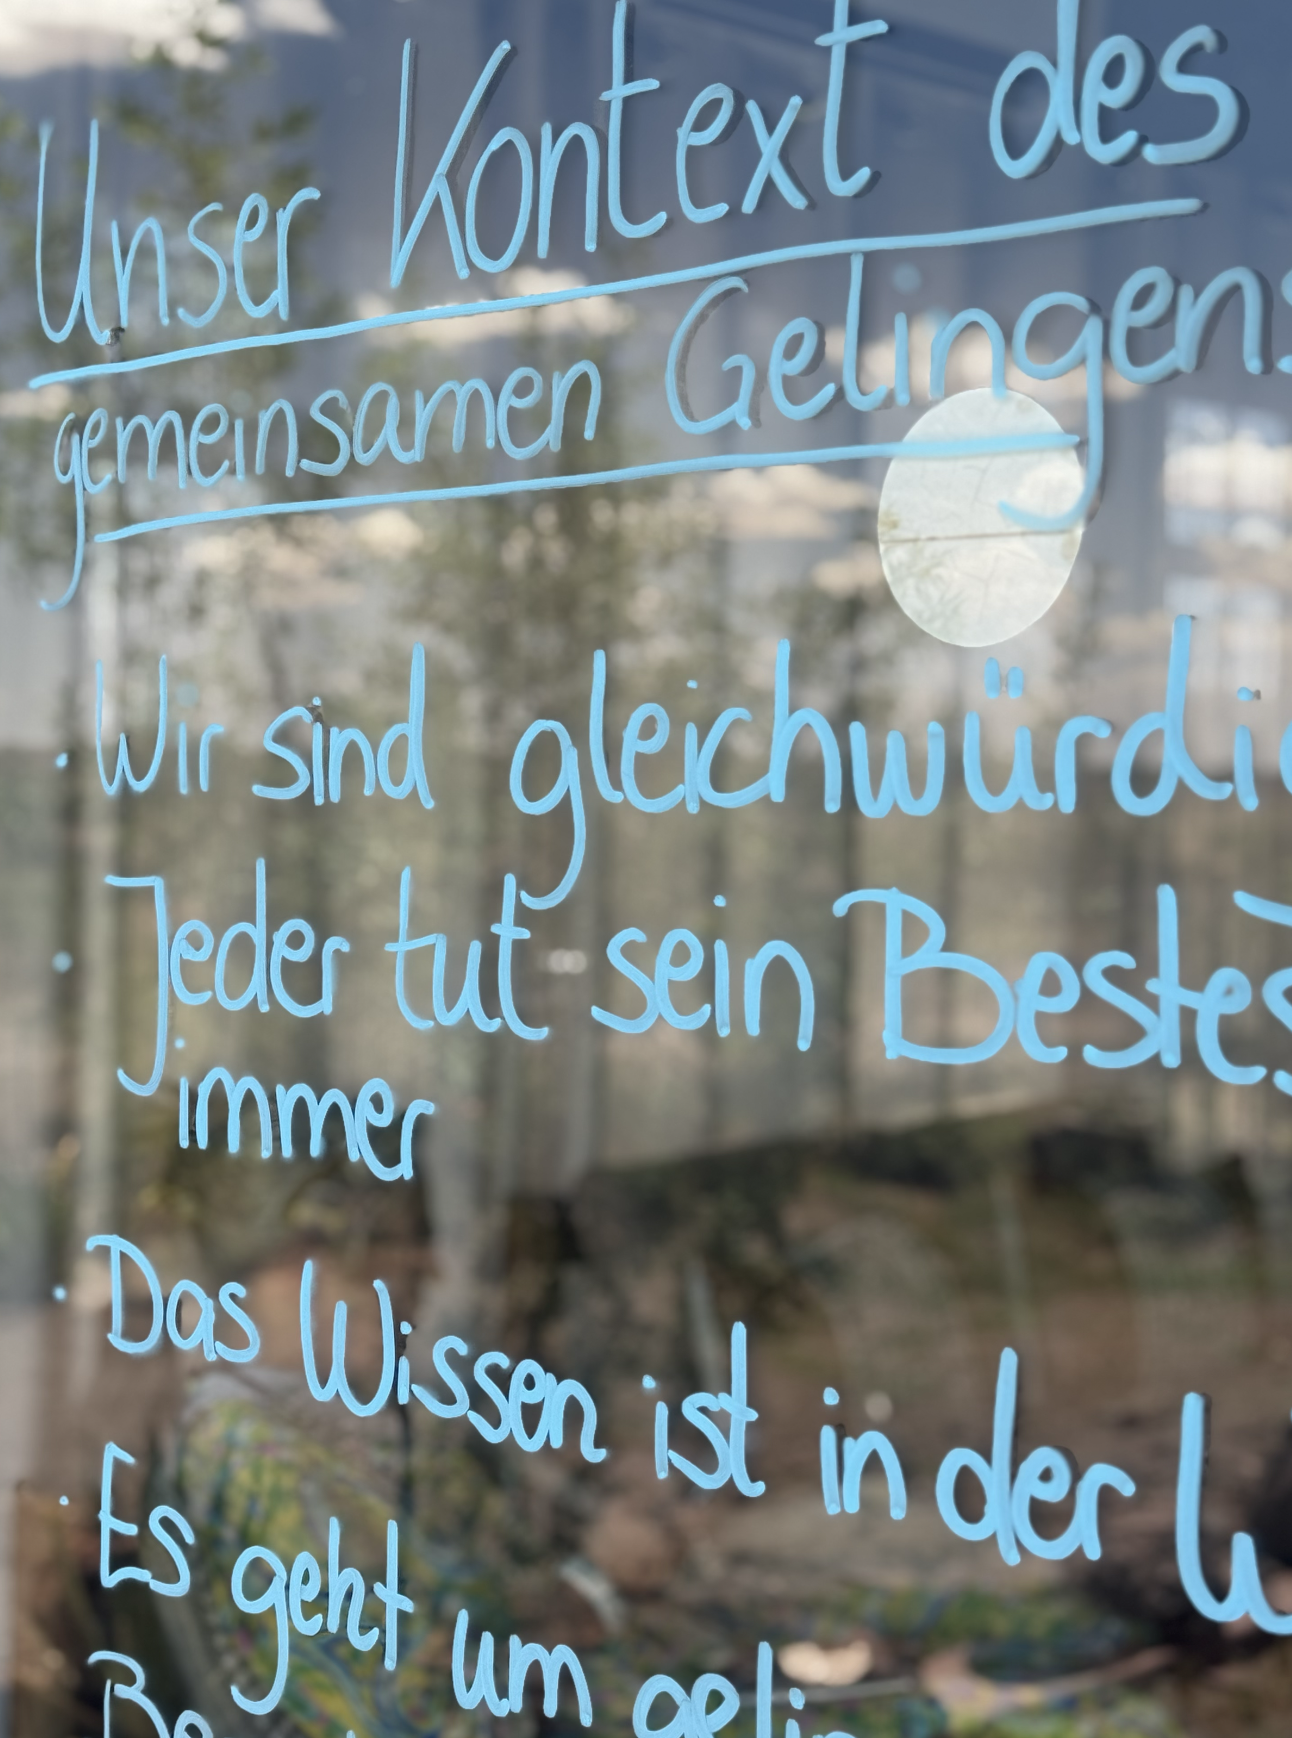 Unser Kontext des
gemeinsamen Gelingens
· Wir sind gleichwürdi
· Jeder tut sein Bestes
immer
· Das Wissen ist in der W
· Es geht um gelin
Be